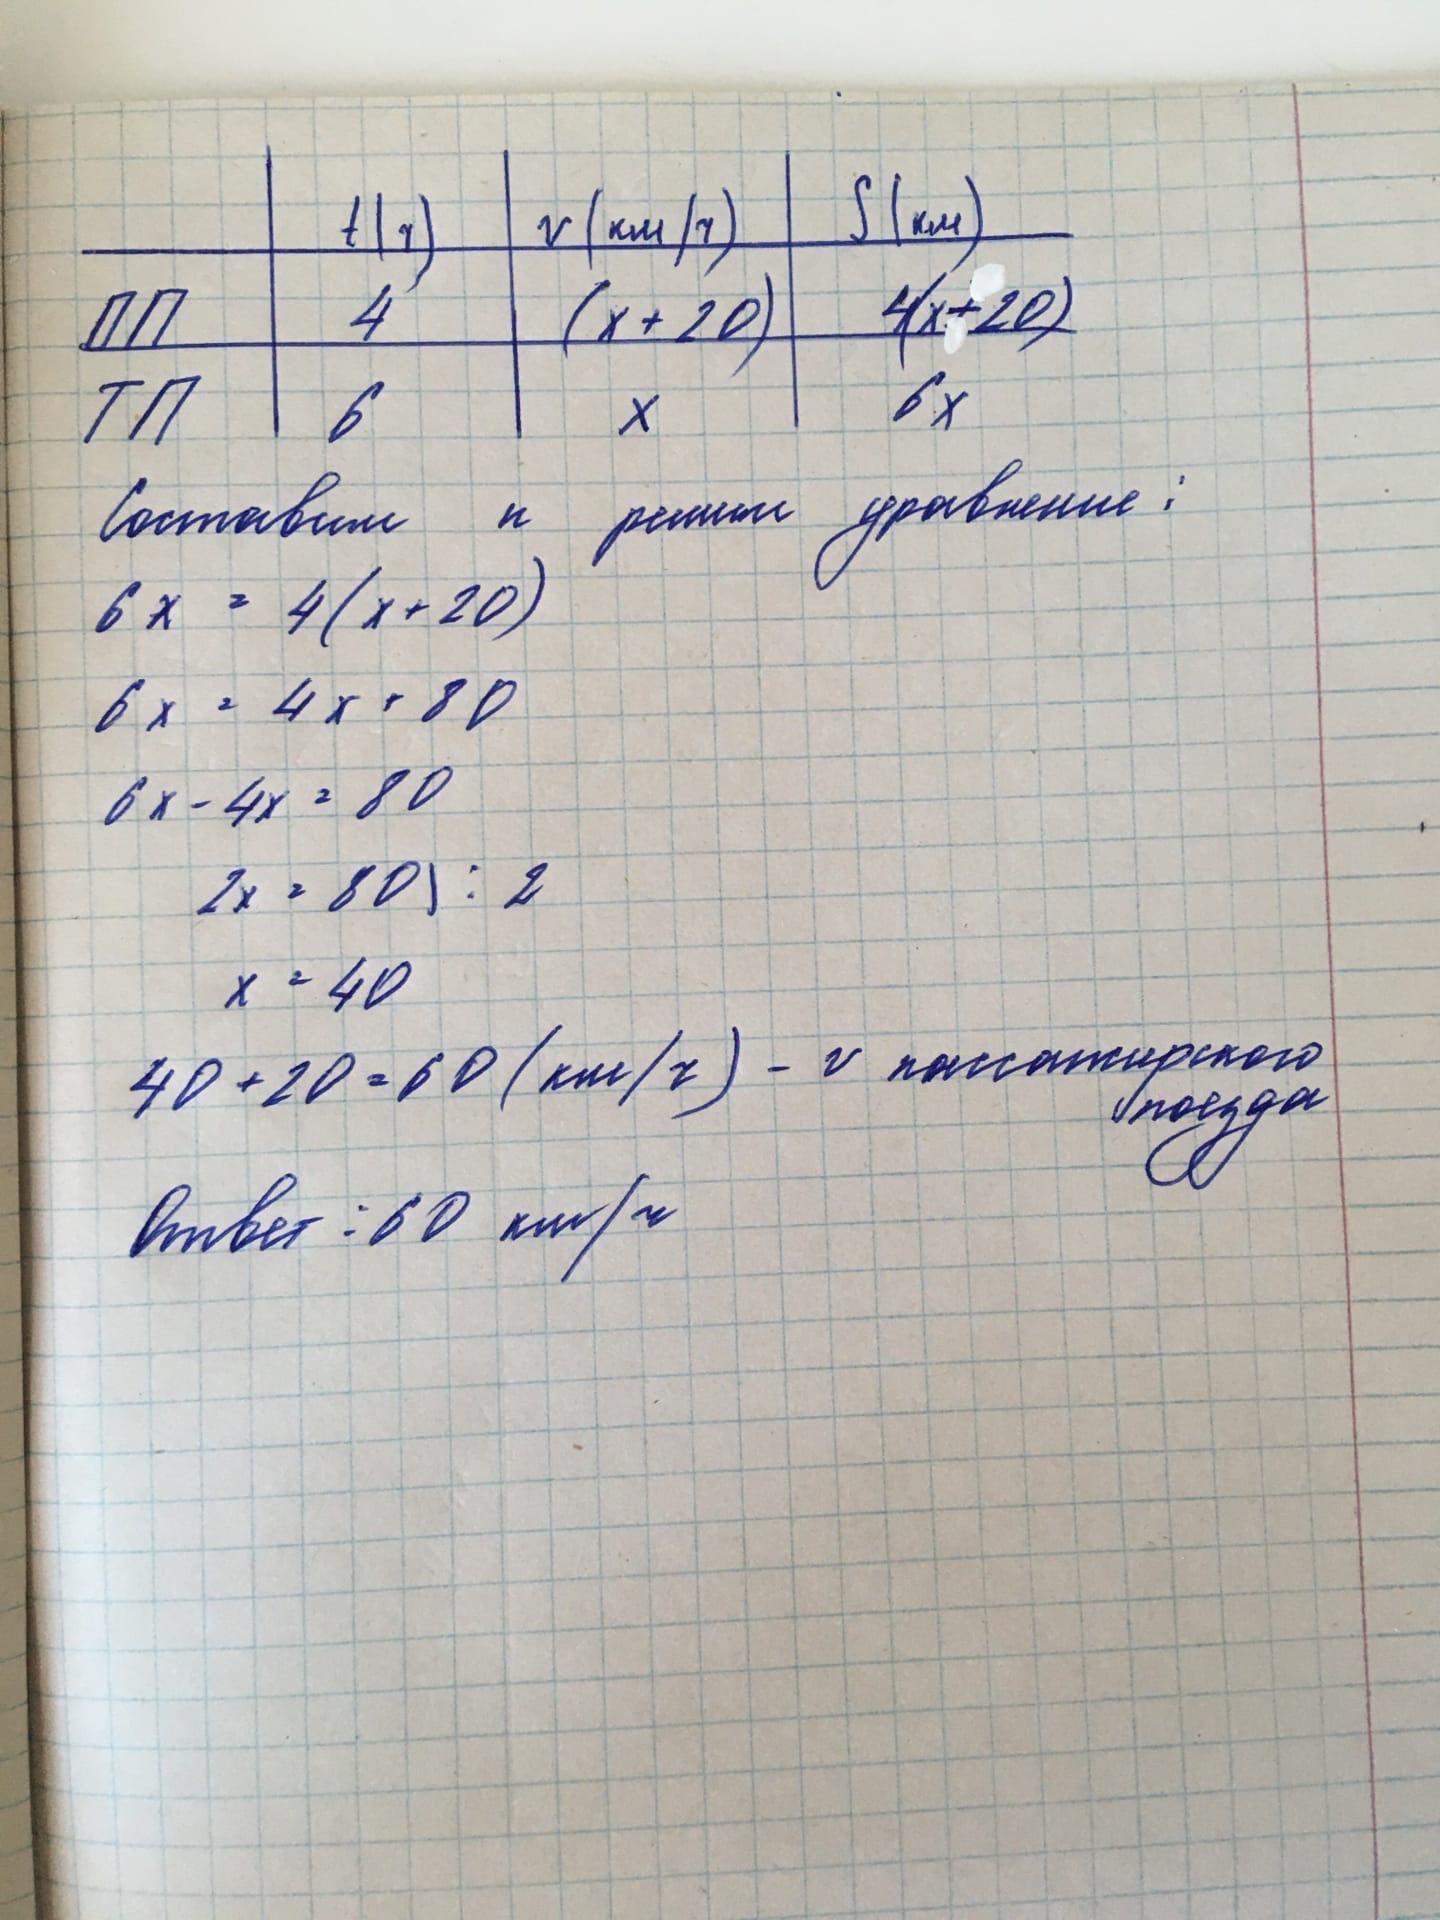 t(ч) v(км/ч) S(км)
ПП 4 (x+20) 4(x+20)
ТП 6 x 6x
Составим и решим уравнение:
6x = 4(x+20)
6x = 4x + 80
6x - 4x = 80
2x = 80 ) : 2
x = 40
40+20=60(км/ч) - v пассажирского
поезда
Ответ: 60 км/ч